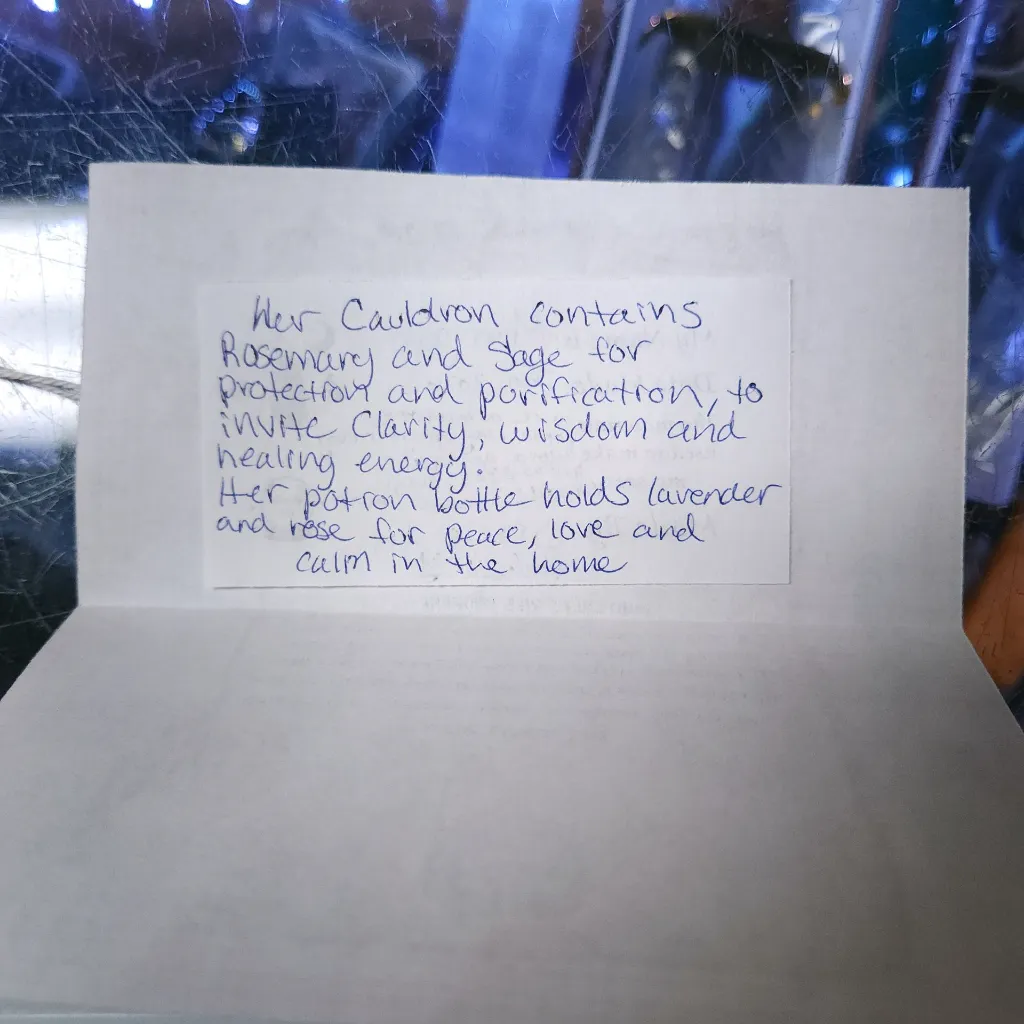 Her Cauldron contains
Rosemary and Sage for
protection and purification, to
invite Clarity, wisdom and
healing energy.
Her potron bottle holds lavender
and rose for peace, love and
calm in the home